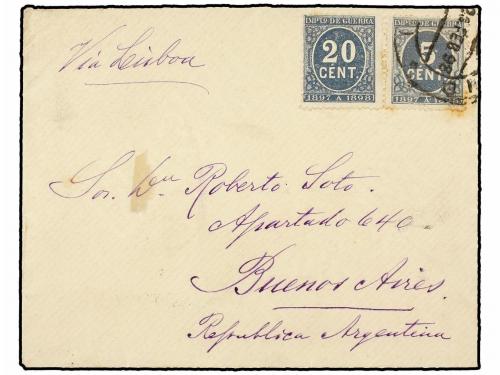 IMPTO DE GUERRA
20
CENT.
1897 A 1898
IMPTO DE GUERRA
5
CENT.
1897 A 1898
Via Lisboa
Sor. Dn Roberto Soto.
Apartado 640
Buenos Aires.
Republica Argentina